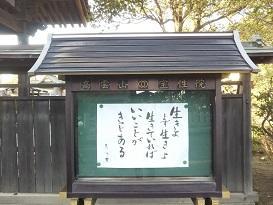 高雲山 宝性院
生きよ
まず生きよ
生きていれば
いいことが
きっとある